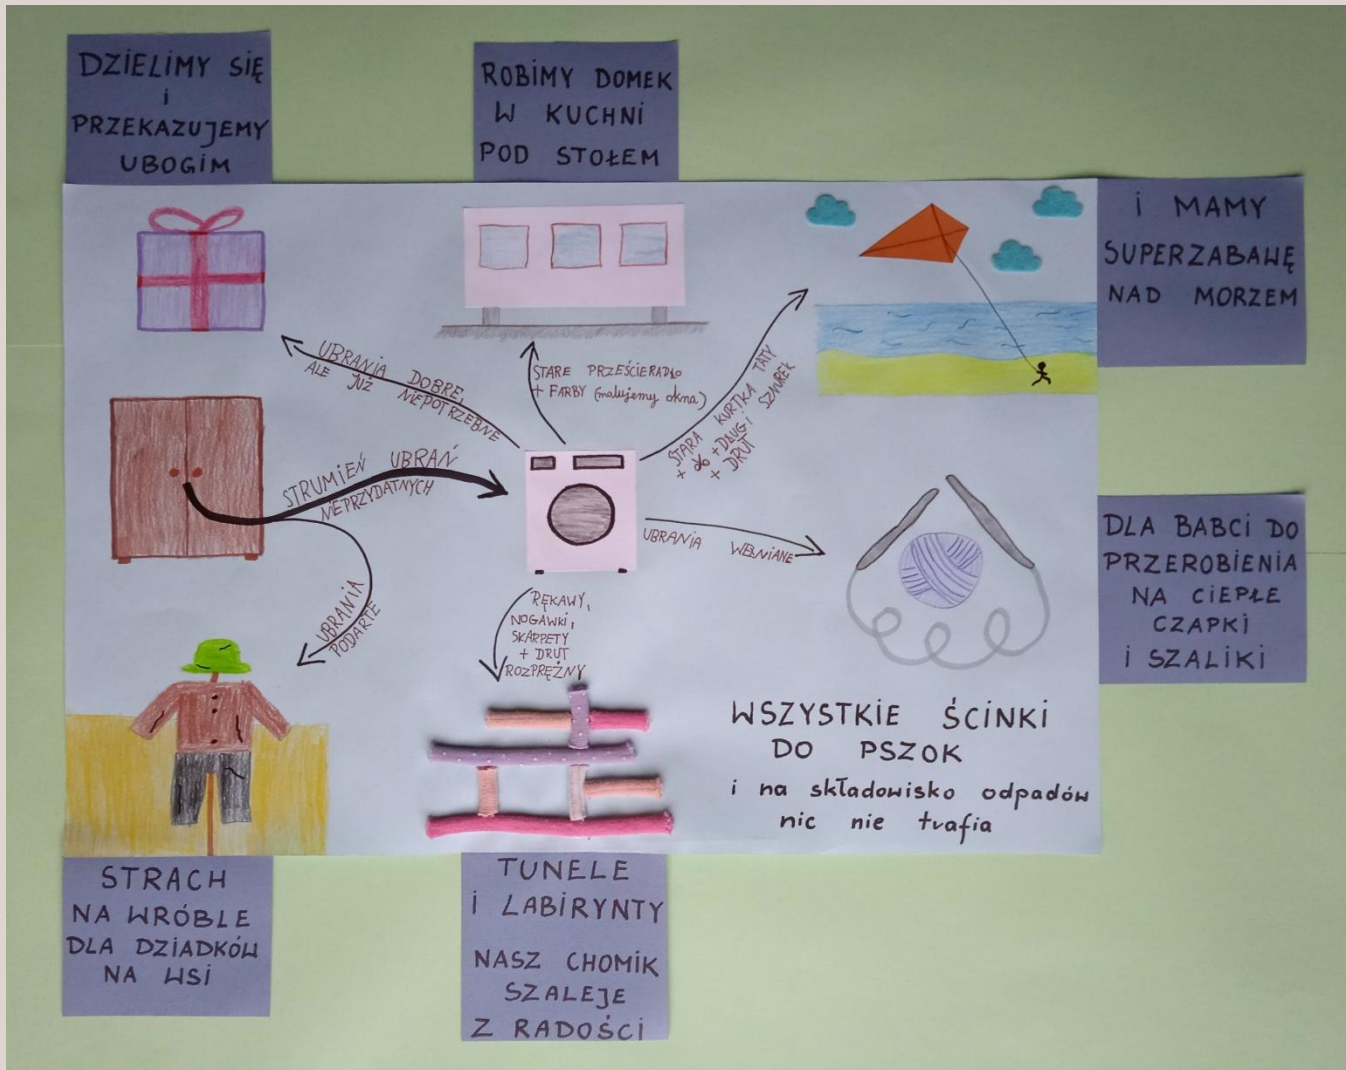 DZIELIMY SIĘ
i
PRZEKAZUJEMY
UBOGIM
ROBIMY DOMEK
W KUCHNI
POD STOŁEM
i MAMY
SUPERZABAWĘ
NAD MORZEM
UBRANIA DOBRE,
ALE JUŻ NIEPOTRZEBNE
STARE PRZEŚCIERADŁO
+ FARBY (malujemy okna)
STARA KURTKA TATY
+ + DŁUGI SZNUREK
+ DRUT
STRUMIEŃ UBRAŃ
NIEPRZYDATNYCH
UBRANIA WEŁNIANE
DLA BABCI DO
PRZEROBIENIA
NA CIEPŁE
CZAPKI
i SZALIKI
UBRANIA
PODARTE
RĘKAWY,
NOGAWKI,
SKARPETY
+ DRUT
ROZPRĘŻNY
WSZYSTKIE ŚCINKI
DO PSZOK
i na składowisko odpadów
nic nie trafia
STRACH
NA WRÓBLE
DLA DZIADKÓW
NA WSI
TUNELE
i LABIRYNTY
NASZ CHOMIK
SZALEJE
Z RADOŚCI